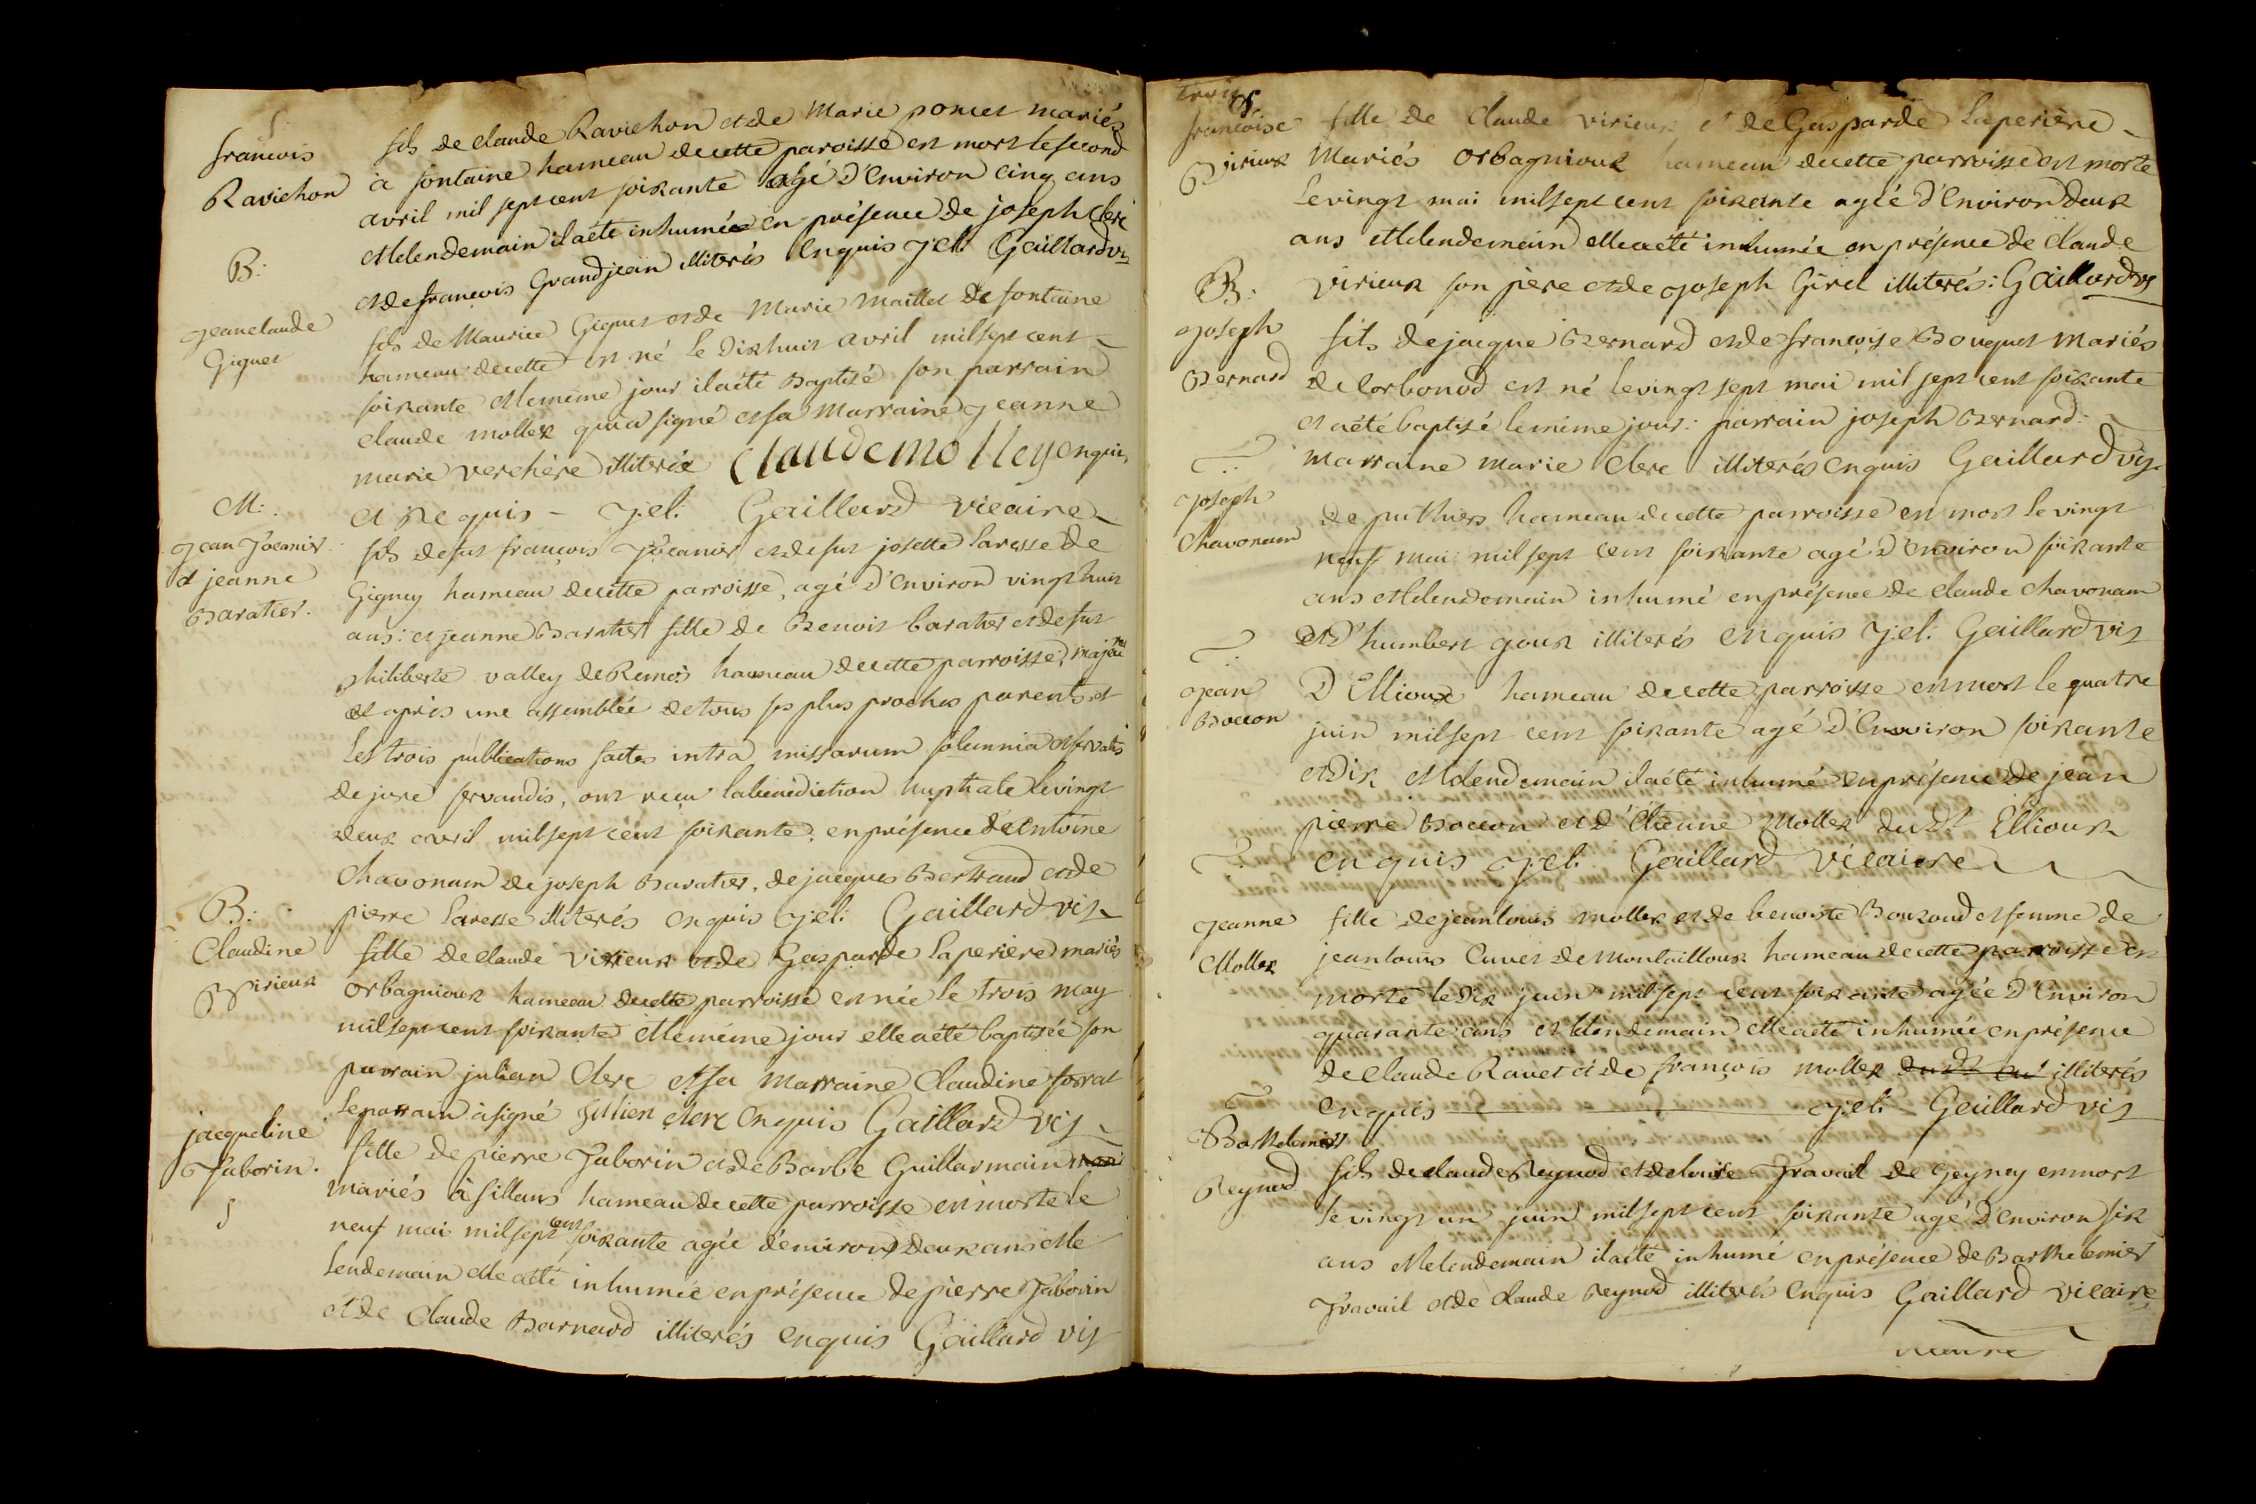 S.
francois
Ravichon
fils de claude Ravichon et de Marie poncet mariés
à fontaine hameau de cette paroisse est mort le second
avril mil sept cent soixante agé d'Environ cinq ans
et le lendemain il a été inhumé en présence de joseph Clerc
et de francois Grandjean illiterés Enquis J.el: Gaillard vi
B:
jeanclaude
Giguet
fils de Maurice Giguet et de Marie Maillet de fontaine
hameau de cette est né le Dixhuit avril mil sept cent
soixante et le même jour il a été Baptisé son parrain
claude mollex qui a signé et sa Marraine jeanne
marie verchère illiterée Claude molley enquis
et Requis - J.el: Gaillard vicaire
M:
jean Jocanier
et jeanne
Baratier.
fils de fut françois Jocanier et de fut josette Laresse de
Gigney hameau de cette parroisse, agé d'Environ vingt huit
ans: et jeanne Baratier fille de Benoit baratier et de fut
philiberte valley de Remoi hameau de cette parroisse, majeure
et après une assemblée de tous ses plus proches parents et
Les trois publications faites intra missarum solemnia et servatis
de jure servandis, ont reçu la bénédiction Nuptiale le vingt
deux avril mil sept cent soixante, en présence de Antoine
Chavonam de joseph Baratier, de jacques Bertrand et de
pierre Laresse illiterés enquis J.el: Gaillard vis
B:
Claudine
Virieux
fille de claude Virieux et de Gasparde Laperière mariés
orbagnioux hameau de cette parroisse est née le trois may
mil sept cent soixante et le même jour elle a été baptisée son
parrain julian Clerc et sa Marraine Claudine forrat
Le parrain à signé Jullien clerc Enquis Gaillard vis
jacqueline
Taborin.
S
fille de pierre Taborin et de Barbe Guillarmain
mariés à sillans hameau de cette parroisse est morte le
neuf mai mil sept cent soixante agée d'environ deux ans et le
lendemain elle a été inhumée en présence de pierre Taborin
et de Claude Barnard illiterés enquis Gaillard vis
trois
S.
francoise
Virieux
fille de Claude Virieux et de Gasparde Laperière
Mariés orbagnioux hameau de cette parroisse est morte
Le vingt mai mil sept cent soixante agée d'Environ deux
ans et le lendemain elle a été inhumée en présence de Claude
Virieux son père et de joseph Girel illiterés: Gaillard vis
B:
joseph
Bernard
fils de jacque Bernard et de françoise Bouquet Mariés
de Corbonod est né le vingt sept mai mil sept cent soixante
et a été baptisé le même jour: parrain joseph Bernard:
Marraine Marie Clerc illiterés enquis Gaillard vis
S:
joseph
Chavonam
de puthiers hameau de cette parroisse est mort le vingt
neuf mai mil sept cent soixante agé d'Environ soixante
ans et le lendemain inhumé en présence de claude chavonam
et d'humbert goux illiterés enquis J.el: Gaillard vis
S:
jean
Boccon
D'Ellioux hameau de cette parroisse est mort le quatre
juin mil sept cent soixante agé d'Environ soixante
et dix et le lendemain il a été inhumé en présence de jean
pierre Boccon et d'Etienne Mollex du dt Ellioux
enquis J.el: Gaillard vicaire
S:
jeanne
Mollex
fille de jeanlouis mollex et de benoite Bouzoud et femme de
jeanlouis Cuvet de Montaillioux hameau de cette parroisse est
morte le dix juin mil sept cent soixante agée d'Environ
quarante ans et le lendemain elle a été inhumée en présence
de claude Ravet et de françois mollex illiterés
Enquis J.el: Gaillard vis
S
Barthelemier
Reynod
fils de claude Reynod et de louise Travail de Geyney est mort
Le vingt un juin mil sept cent soixante agé d'Environ six
ans et le lendemain il a été inhumé en présence de Barthelemier
Travail et de claude Reynod illiterés Enquis Gaillard vicaire